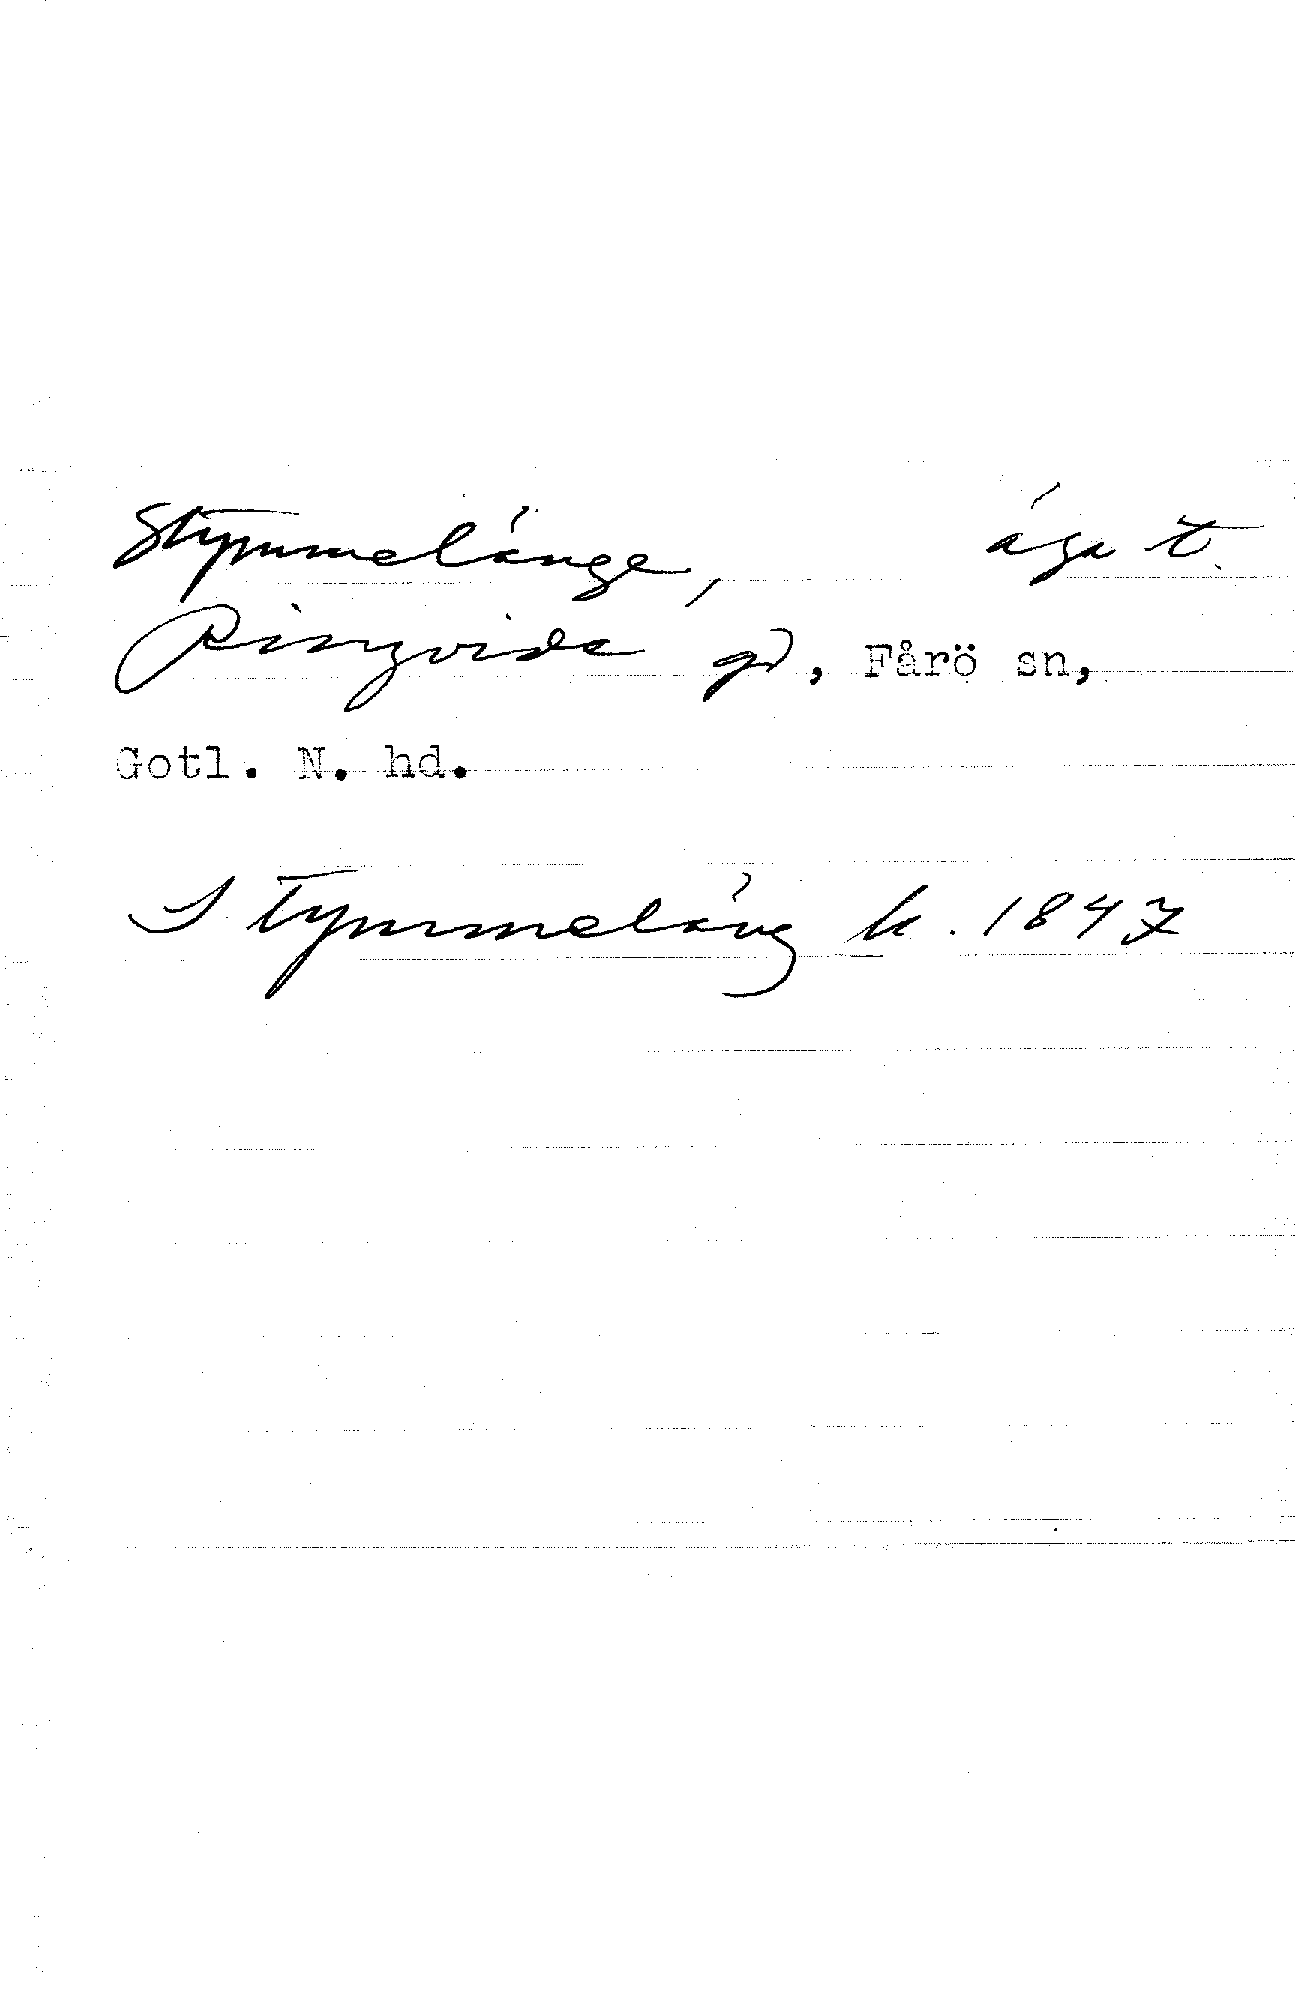 Stymmelånge, äga t.
Ringvide gd, Fårö sn,
Gotl. N. hd.
Stymmelång k. 1847